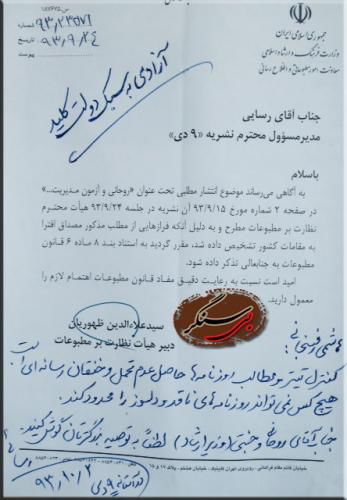 س-۱۸۷۶۷۵
شماره ۹۳,۲۳۵۷۱
تاریخ ۹۳,۹,۲۴
پیوست
جمهوری اسلامی ایران
وزارت فرهنگ و ارشاد اسلامی
معاونت امور مطبوعاتی و اطلاع رسانی
آزادی به سبک دولت کلید
جناب آقای رسایی
مدیرمسؤول محترم نشریه «۹ دی»
باسلام
به آگاهی می‌رساند موضوع انتشار مطلبی تحت عنوان «روحانی و آزمون مدیریت..»
در صفحه ۲ شماره مورخ ۹۳/۹/۱۵ آن نشریه در جلسه ۹۳/۹/۲۴ هیأت محترم
نظارت بر مطبوعات مطرح و به دلیل آنکه فرازهایی از مطلب مذکور مصداق افترا
به مقامات کشور تشخیص داده شد، مقرر گردید به استناد بند ۸ ماده ۶ قانون
مطبوعات به جنابعالی تذکر داده شود.
امید است نسبت به رعایت دقیق مفاد قانون مطبوعات اهتمام لازم را
معمول دارید.
سیدعلاءالدین ظهوریان
دبیر هیأت نظارت بر مطبوعات
بی سنگر
هاشمی رفسنجانی:
کنترل تیتر و مطالب روزنامه‌ها حاصل عدم تحمل و خفقان رسانه‌ای است
هیچ کس نمی‌تواند روزنامه‌های ناقد و دلسوز را محدود کند.
جناب آقای روحانی و جنتی (وزیر ارشاد) لطفاً به توصیه بزرگترتان گوش کنید.
۹۳,۱۰,۲
خیابان قائم مقام فراهانی، روبروی تهران کلینیک، خیابان هشتم، پلاک ۱۷ و ۱۵